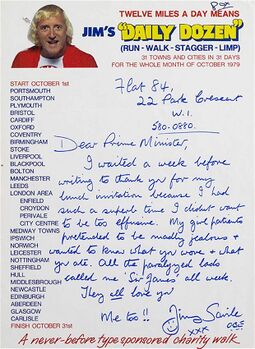 TWELVE MILES A DAY MEANS
JIM'S "DAILY DOZEN"
(RUN - WALK - STAGGER - LIMP)
31 TOWNS AND CITIES IN 31 DAYS
FOR THE WHOLE MONTH OF OCTOBER 1979
START OCTOBER 1st
PORTSMOUTH
SOUTHAMPTON
PLYMOUTH
BRISTOL
CARDIFF
OXFORD
COVENTRY
BIRMINGHAM
STOKE
LIVERPOOL
BLACKPOOL
BOLTON
MANCHESTER
LEEDS
LONDON AREA
ENFIELD
CROYDON
PERIVALE
CITY CENTRE
MEDWAY TOWNS
IPSWICH
NORWICH
LEICESTER
NOTTINGHAM
SHEFFIELD
HULL
MIDDLESBROUGH
NEWCASTLE
EDINBURGH
ABERDEEN
GLASGOW
CARLISLE
FINISH OCTOBER 31st
Flat 84,
22 Park Crescent
W.1.
580-0880.
Dear Prime Minister,
I waited a week before
writing to thank you for my
lunch invitation because I had
such a superb time I didn't want
to be too effusive. My girl patients
pretended to be madly jealous &
wanted to know what you wore & what
you ate. All the paralysed lads
called me 'Sir James' all week.
They all love you
Me too!!
Jimmy Savile
OBE
xxx
A never-before type sponsored charity walk